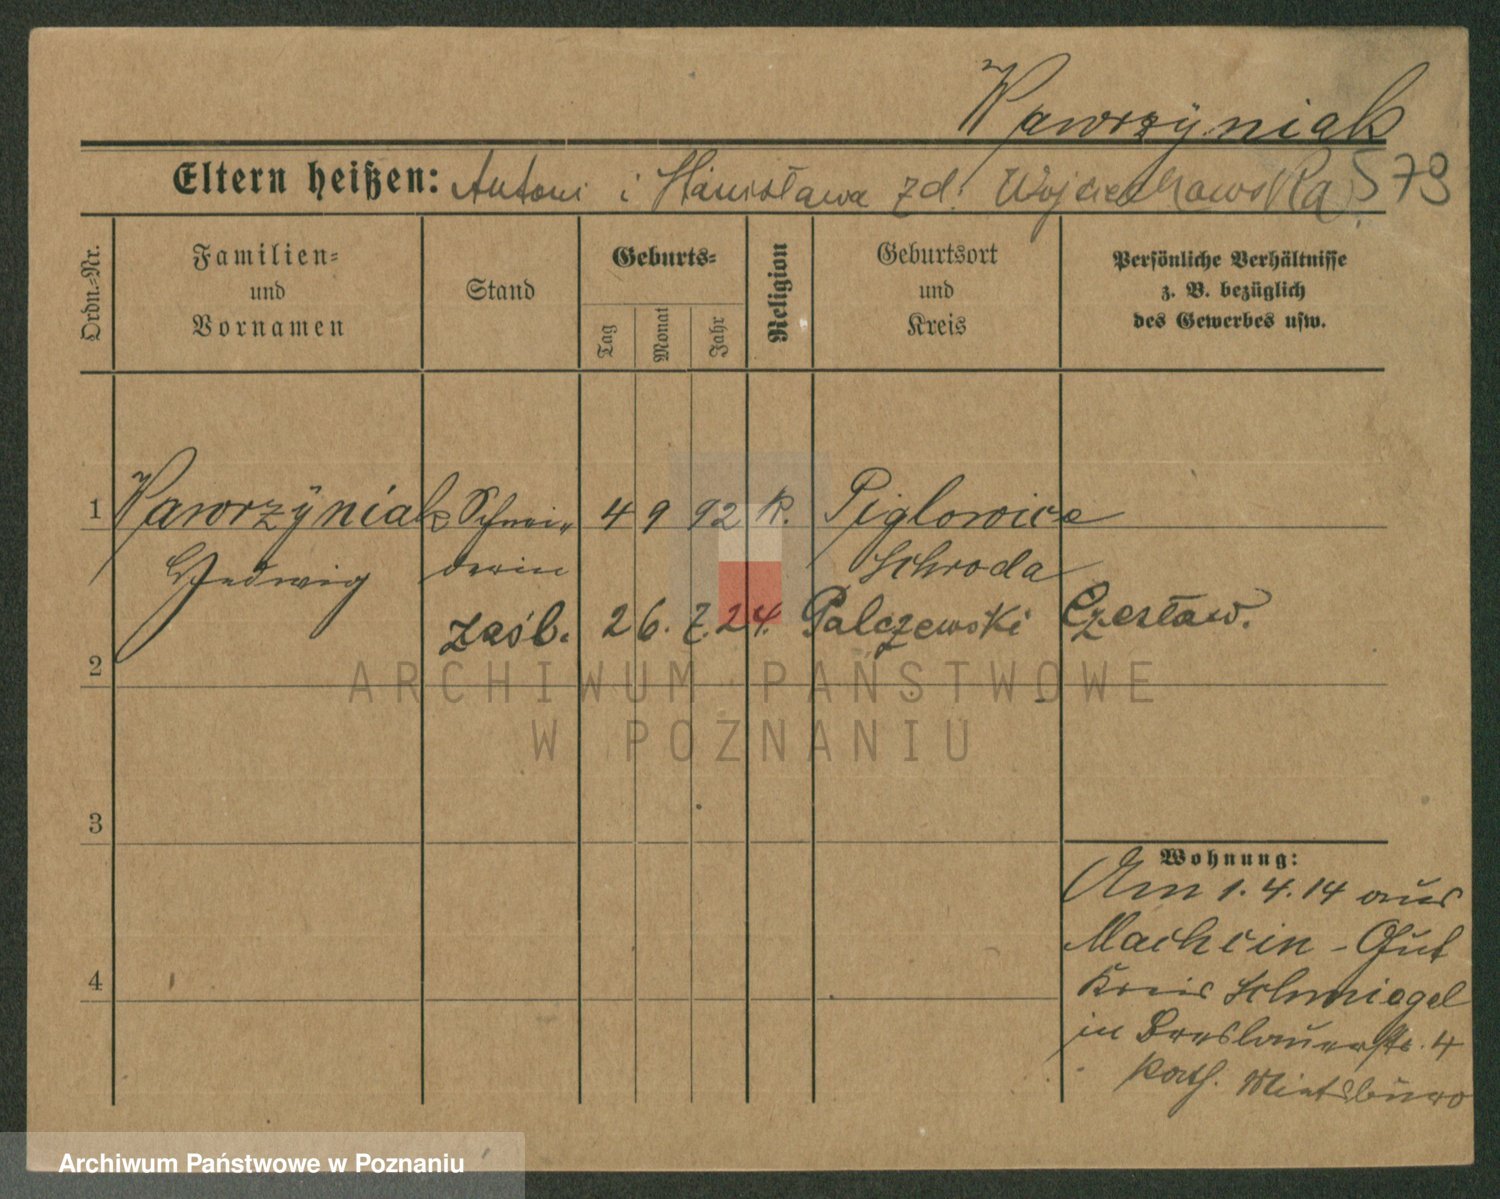 Wawrzÿniak
Eltern heißen: Antoni i Stanisława zd. Wojciechowska 579
Ordn.=Nr.
Familien=
und
Vornamen
Stand
Geburts=
Tag
Monat
Jahr
Religion
Geburtsort
und
Kreis
Persönliche Verhältnisse
z. B. bezüglich
des Gewerbes usw.
1 Wawrzÿniak Schnei- 4 9 92 K. Piglowice
Hedwig derin Schroda
zaśb. 26. 7. 24. Palczewski Czesław.
2
ARCHIWUM PAŃSTWOWE
W POZNANIU
3
Wohnung:
Am 1.4.14 aus
Machcin - Gut
4
Kreis Schmiegel
in Breslauerstr. 4
Kath. Mietsbüro
Archiwum Państwowe w Poznaniu